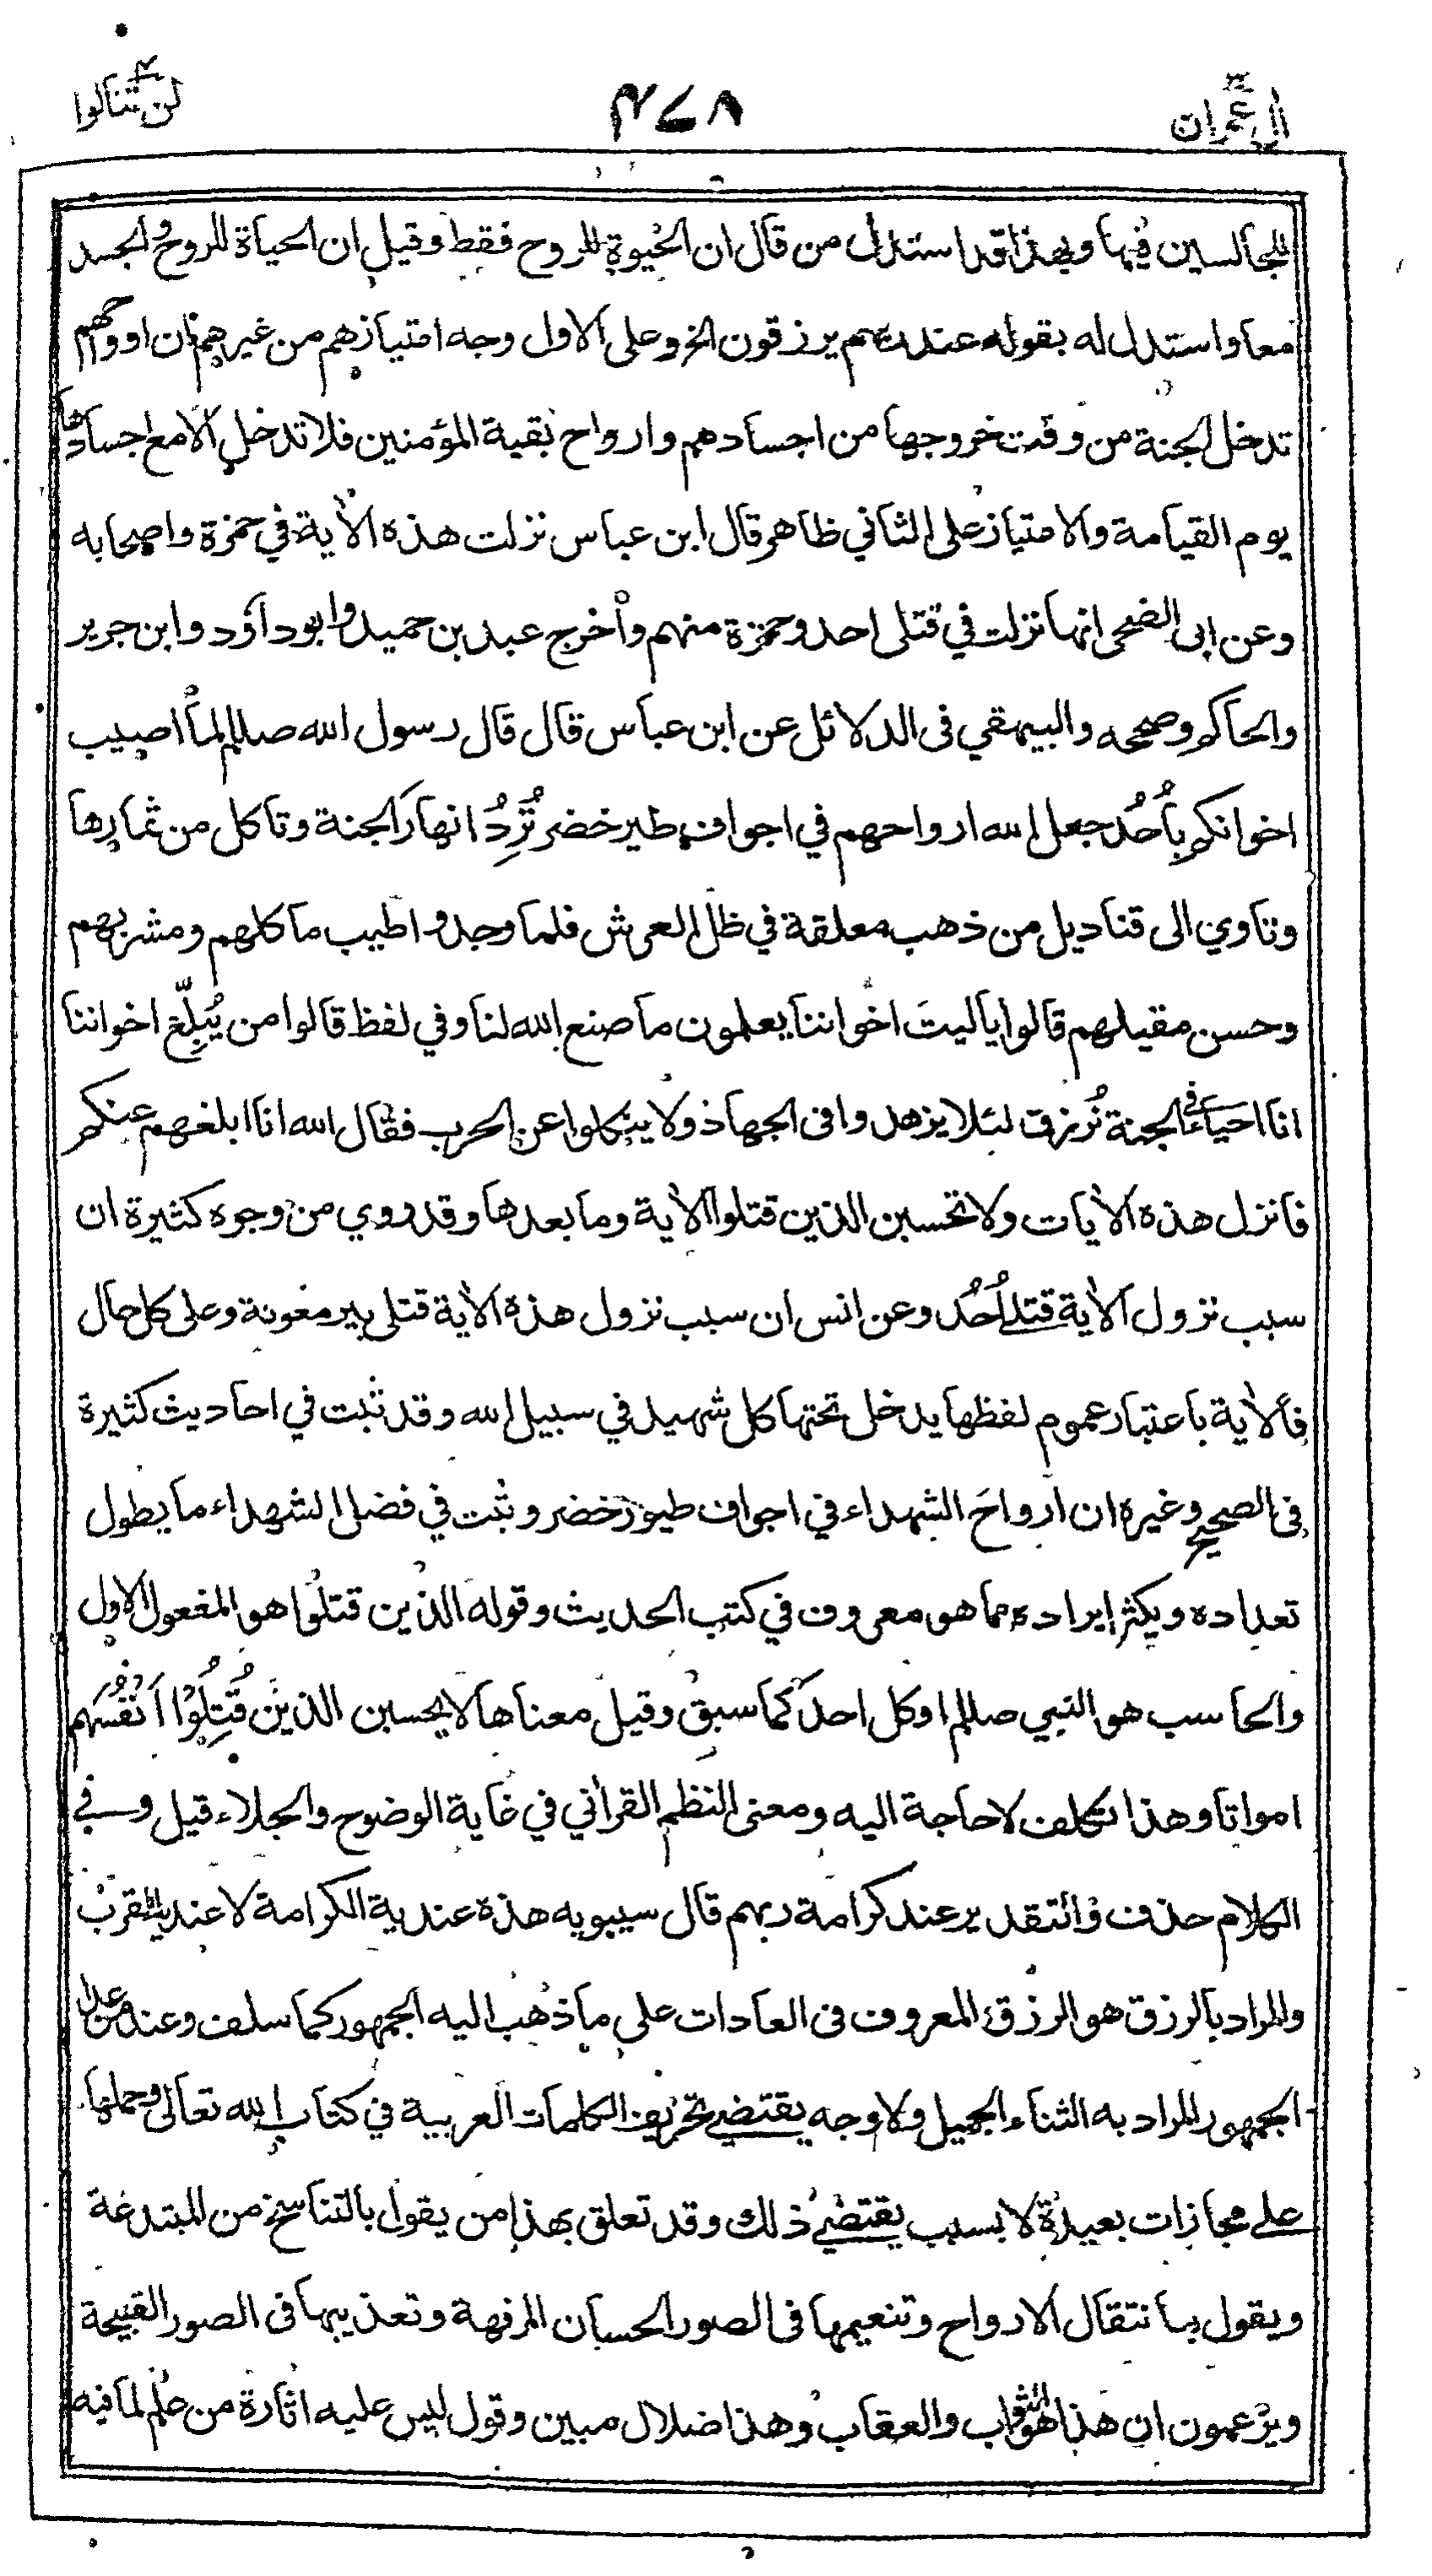 اٰل عمران ٣
٤٦٨
لن تنالوا ٤
للجالسين فيها وبهذا قد استدل من قال ان الحيوة للروح فقط وقيل ان الحياة للروح والجسد
معا واستدل له بقوله عند ربهم يرزقون الخ وعلى الاول وجه امتيازهم من غيرهم ان ارواحهم
تدخل الجنة من وقت خروجها من اجسادهم وارواح بقية المؤمنين فلا تدخل الا مع اجسادها
يوم القيامة والامتياز على الثاني ظاهر قال ابن عباس نزلت هذه الأية في حمزة واصحابه
وعن ابى الضحى انها نزلت في قتلى احد وحمزة منهم وأخرج عبد بن حميد وابو داؤد وابن جرير
والحاكم وصححه والبيهقي فى الدلائل عن ابن عباس قال قال رسول الله صللم لما اصيب
اخوانكم بأُحُد جعل الله ارواحهم في اجواف طير خضر تَرِدُ انهارَ الجنة وتاكل من ثمارها
وتاوي الى قناديل من ذهب معلقة في ظل العرش فلما وجدوا طيب ماكلهم ومشربهم
وحسن مقيلهم قالوا ياليتَ اخواننا يعلمون ما صنع الله لنا وفي لفظ قالوا من يُبلِّغ اخواننا
انا احياء في الجنة نُرزق لئلا يزهدوا فى الجهاد ولا ينكلوا عن الحرب فقال الله انا ابلغهم عنكم
فانزل هذه الأيات ولا تحسبن الذين قتلوا الأية وما بعدها وقد روي من وجوه كثيرة ان
سبب نزول الأية قتلى أُحُد وعن انس ان سبب نزول هذه الأية قتلى بير معونة وعلى كل حال
فالأية باعتبار عموم لفظها يدخل تحتها كل شهيد في سبيل الله وقد ثبت في احاديث كثيرة
فى الصحيح وغيره ان ارواحَ الشهداء في اجواف طيور خضر وثبت في فضل الشهداء ما يطول
تعداده ويكثر إيراده مما هو معروف في كتب الحديث وقوله الذين قتلوا هو المفعول الاول
والحاسب هو النبي صللم او كل احد كما سبق وقيل معناها لا يحسبن الذين قُتِلُوْا اَنْفُسَهم
امواتا وهذا تكلف لا حاجة اليه ومعنى النظم القرأني في غاية الوضوح والجلاء قيل وفي
الكلام حذف والتقدير عند كرامة ربهم قال سيبويه هذه عندية الكرامة لا عندية القرب
والمراد بالرزق هو الرزق المعروف فى العادات على ما ذهب اليه الجمهور كما سلف وعند من عدا
الجمهور المراد به الثناء الجميل ولا وجه يقتضي تحريف الكلمات العربية في كتاب الله تعالى وحملها
على مجازات بعيدة لا بسبب يقتضي ذلك وقد تعلق بهذا من يقول بالتناسخ من المبتدعة
ويقول بانتقال الارواح وتنعيمها فى الصور الحسان المرفهة وتعذيبها فى الصور القبيحة
ويزعمون ان هذا هو الثواب والعقاب وهذا ضلال مبين وقول ليس عليه اثارة من علم لما فيه